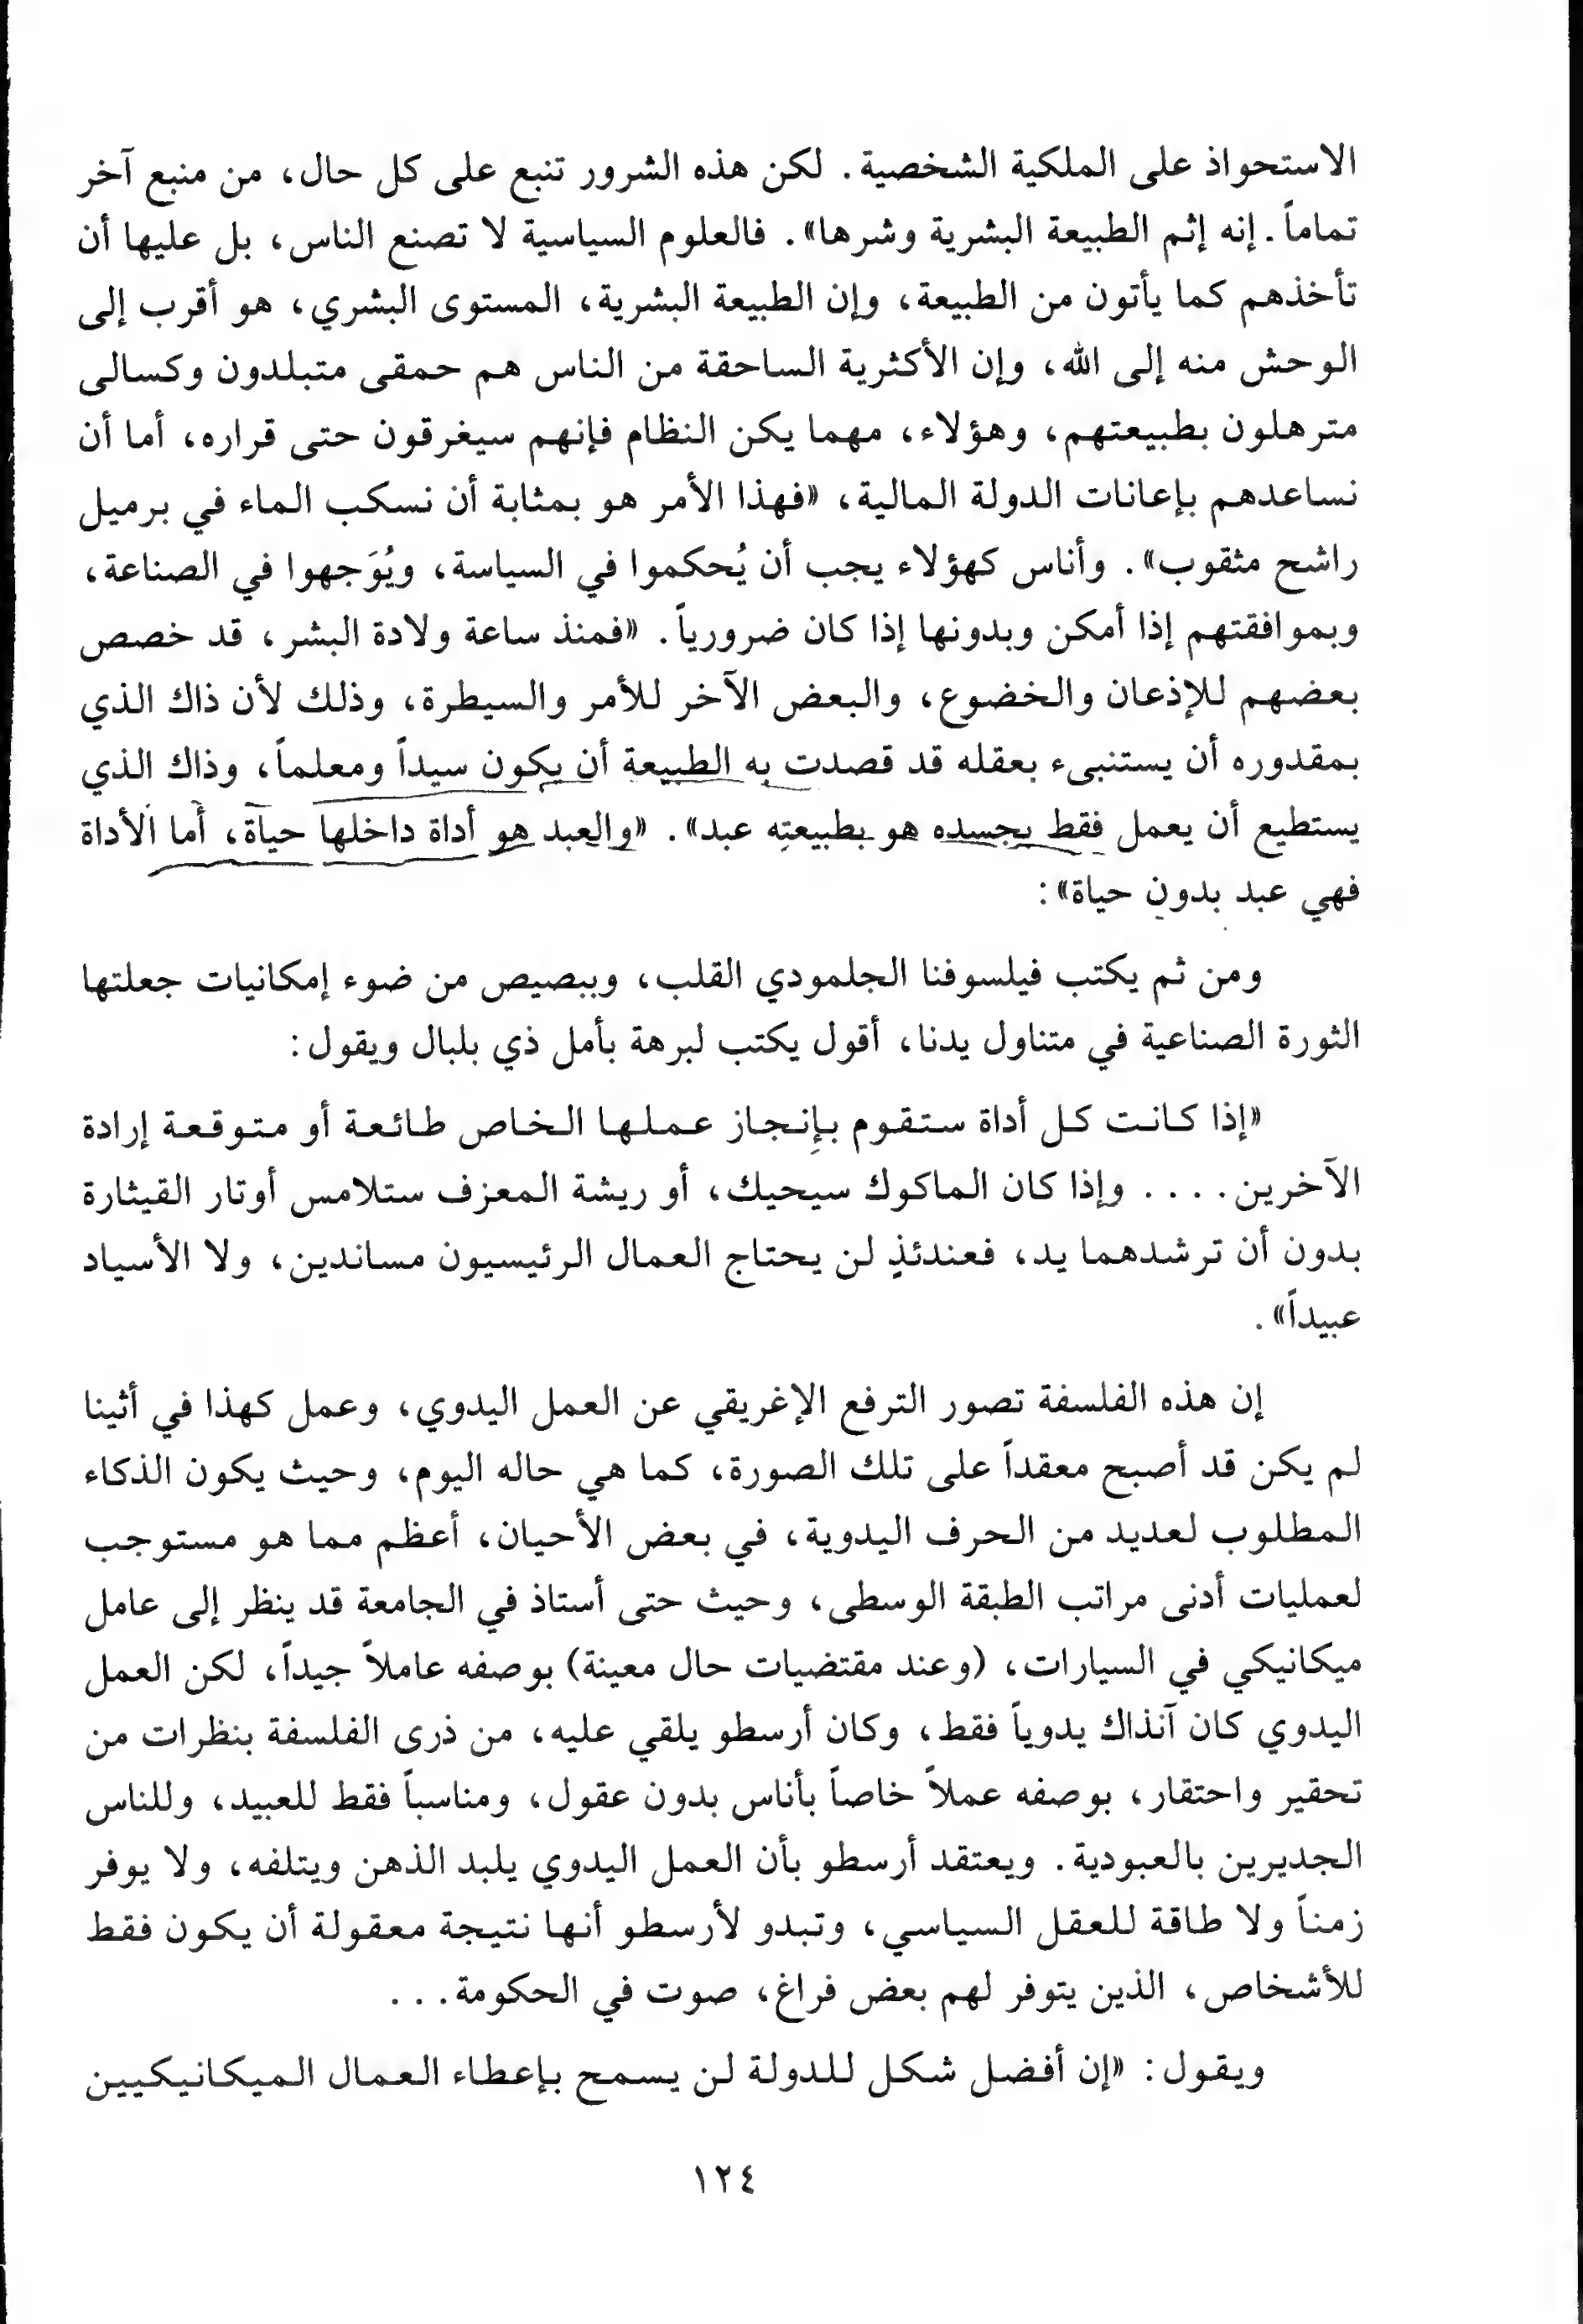 الاستحواذ على الملكية الشخصية. لكن هذه الشرور تنبع على كل حال، من منبع آخر
تماماً. إنه إثم الطبيعة البشرية وشرها». فالعلوم السياسية لا تصنع الناس، بل عليها أن
تأخذهم كما يأتون من الطبيعة، وإن الطبيعة البشرية، المستوى البشري، هو أقرب إلى
الوحش منه إلى الله، وإن الأكثرية الساحقة من الناس هم حمقى متبلدون وكسالى
مترهلون بطبيعتهم، وهؤلاء، مهما يكن النظام فإنهم سيغرقون حتى قراره، أما أن
نساعدهم بإعانات الدولة المالية، «فهذا الأمر هو بمثابة أن نسكب الماء في برميل
راشح مثقوب». وأناس كهؤلاء يجب أن يُحكموا في السياسة، ويُوَجهوا في الصناعة،
وبموافقتهم إذا أمكن وبدونها إذا كان ضرورياً. «فمنذ ساعة ولادة البشر، قد خصص
بعضهم للإذعان والخضوع، والبعض الآخر للأمر والسيطرة، وذلك لأن ذاك الذي
بمقدوره أن يستنبىء بعقله قد قصدت به الطبيعة أن يكون سيداً ومعلماً، وذاك الذي
يستطيع أن يعمل فقط بجسده هو بطبيعته عبد». «والعبد هو أداة داخلها حياة، أما الأداة
فهي عبد بدون حياة»:
ومن ثم يكتب فيلسوفنا الجلمودي القلب، وببصيص من ضوء إمكانيات جعلتها
الثورة الصناعية في متناول يدنا، أقول يكتب لبرهة بأمل ذي بلبال ويقول:
«إذا كانت كل أداة ستقوم بإنجاز عملها الخاص طائعة أو متوقعة إرادة
الآخرين.... وإذا كان الماكوك سيحيك، أو ريشة المعزف ستلامس أوتار القيثارة
بدون أن ترشدهما يد، فعندئذٍ لن يحتاج العمال الرئيسيون مساندين، ولا الأسياد
عبيداً».
إن هذه الفلسفة تصور الترفع الإغريقي عن العمل اليدوي، وعمل كهذا في أثينا
لم يكن قد أصبح معقداً على تلك الصورة، كما هي حاله اليوم، وحيث يكون الذكاء
المطلوب لعديد من الحرف اليدوية، في بعض الأحيان، أعظم مما هو مستوجب
لعمليات أدنى مراتب الطبقة الوسطى، وحيث حتى أستاذ في الجامعة قد ينظر إلى عامل
ميكانيكي في السيارات، (وعند مقتضيات حال معينة) بوصفه عاملاً جيداً، لكن العمل
اليدوي كان آنذاك يدوياً فقط، وكان أرسطو يلقي عليه، من ذرى الفلسفة بنظرات من
تحقير واحتقار، بوصفه عملاً خاصاً بأناس بدون عقول، ومناسباً فقط للعبيد، وللناس
الجديرين بالعبودية. ويعتقد أرسطو بأن العمل اليدوي يلبد الذهن ويتلفه، ولا يوفر
زمناً ولا طاقة للعقل السياسي، وتبدو لأرسطو أنها نتيجة معقولة أن يكون فقط
للأشخاص، الذين يتوفر لهم بعض فراغ، صوت في الحكومة...
ويقول: «إن أفضل شكل للدولة لن يسمح بإعطاء العمال الميكانيكيين
١٢٤